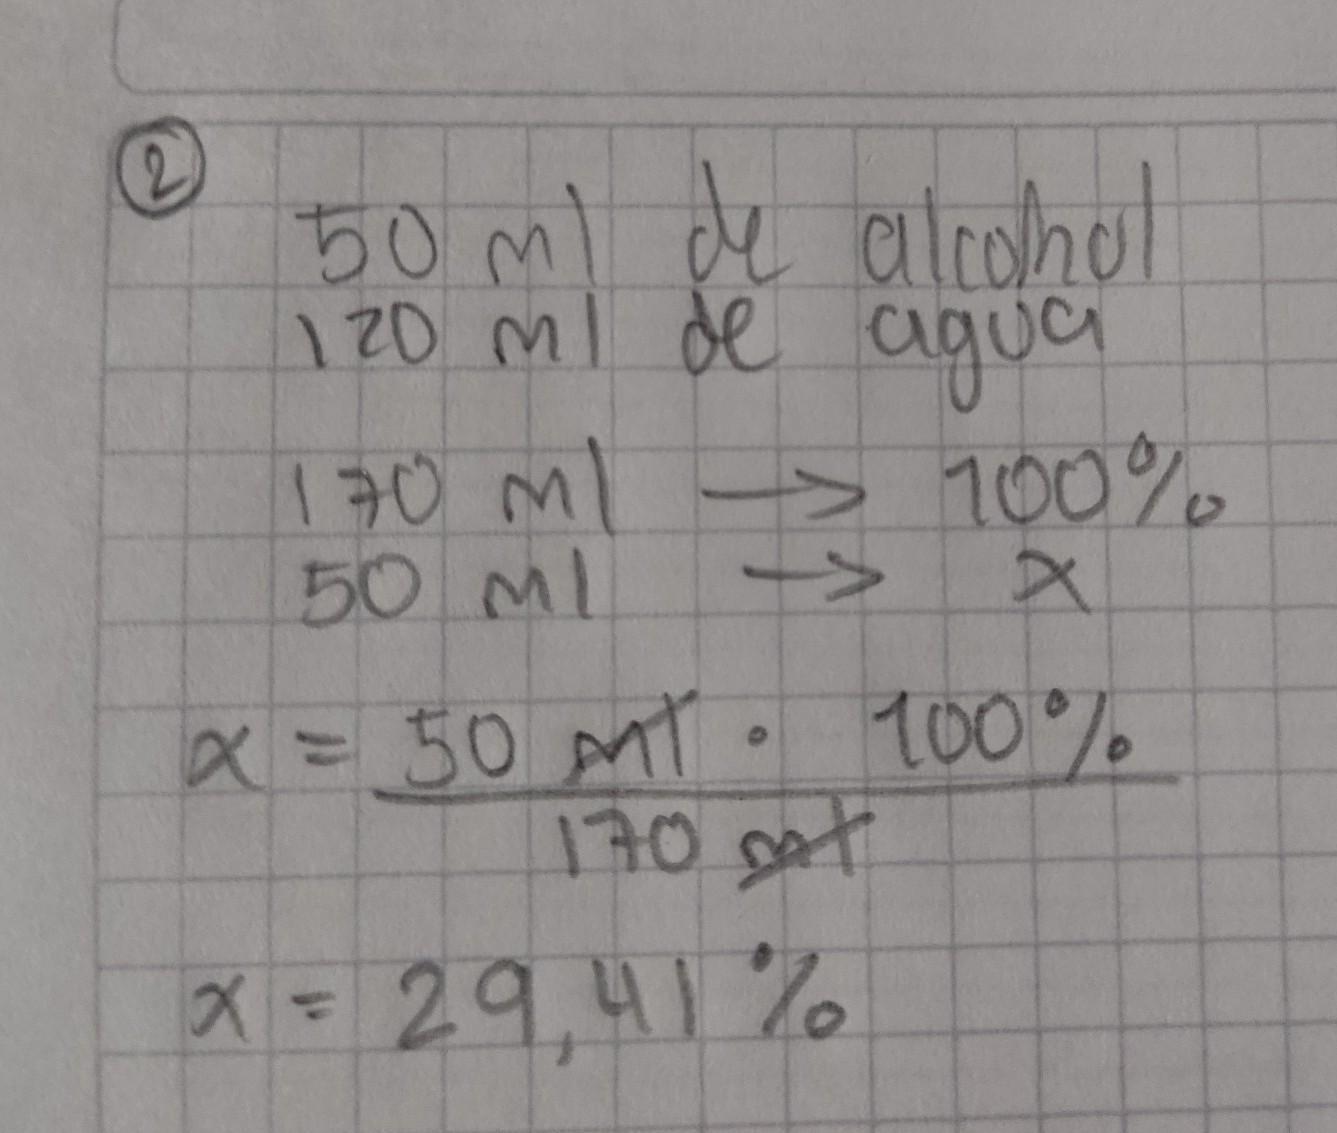 2
50 ml de alcohol
120 ml de agua
170 ml → 100%
50 ml → x
x = 50 ml · 100%
170 ml
x = 29,41 %